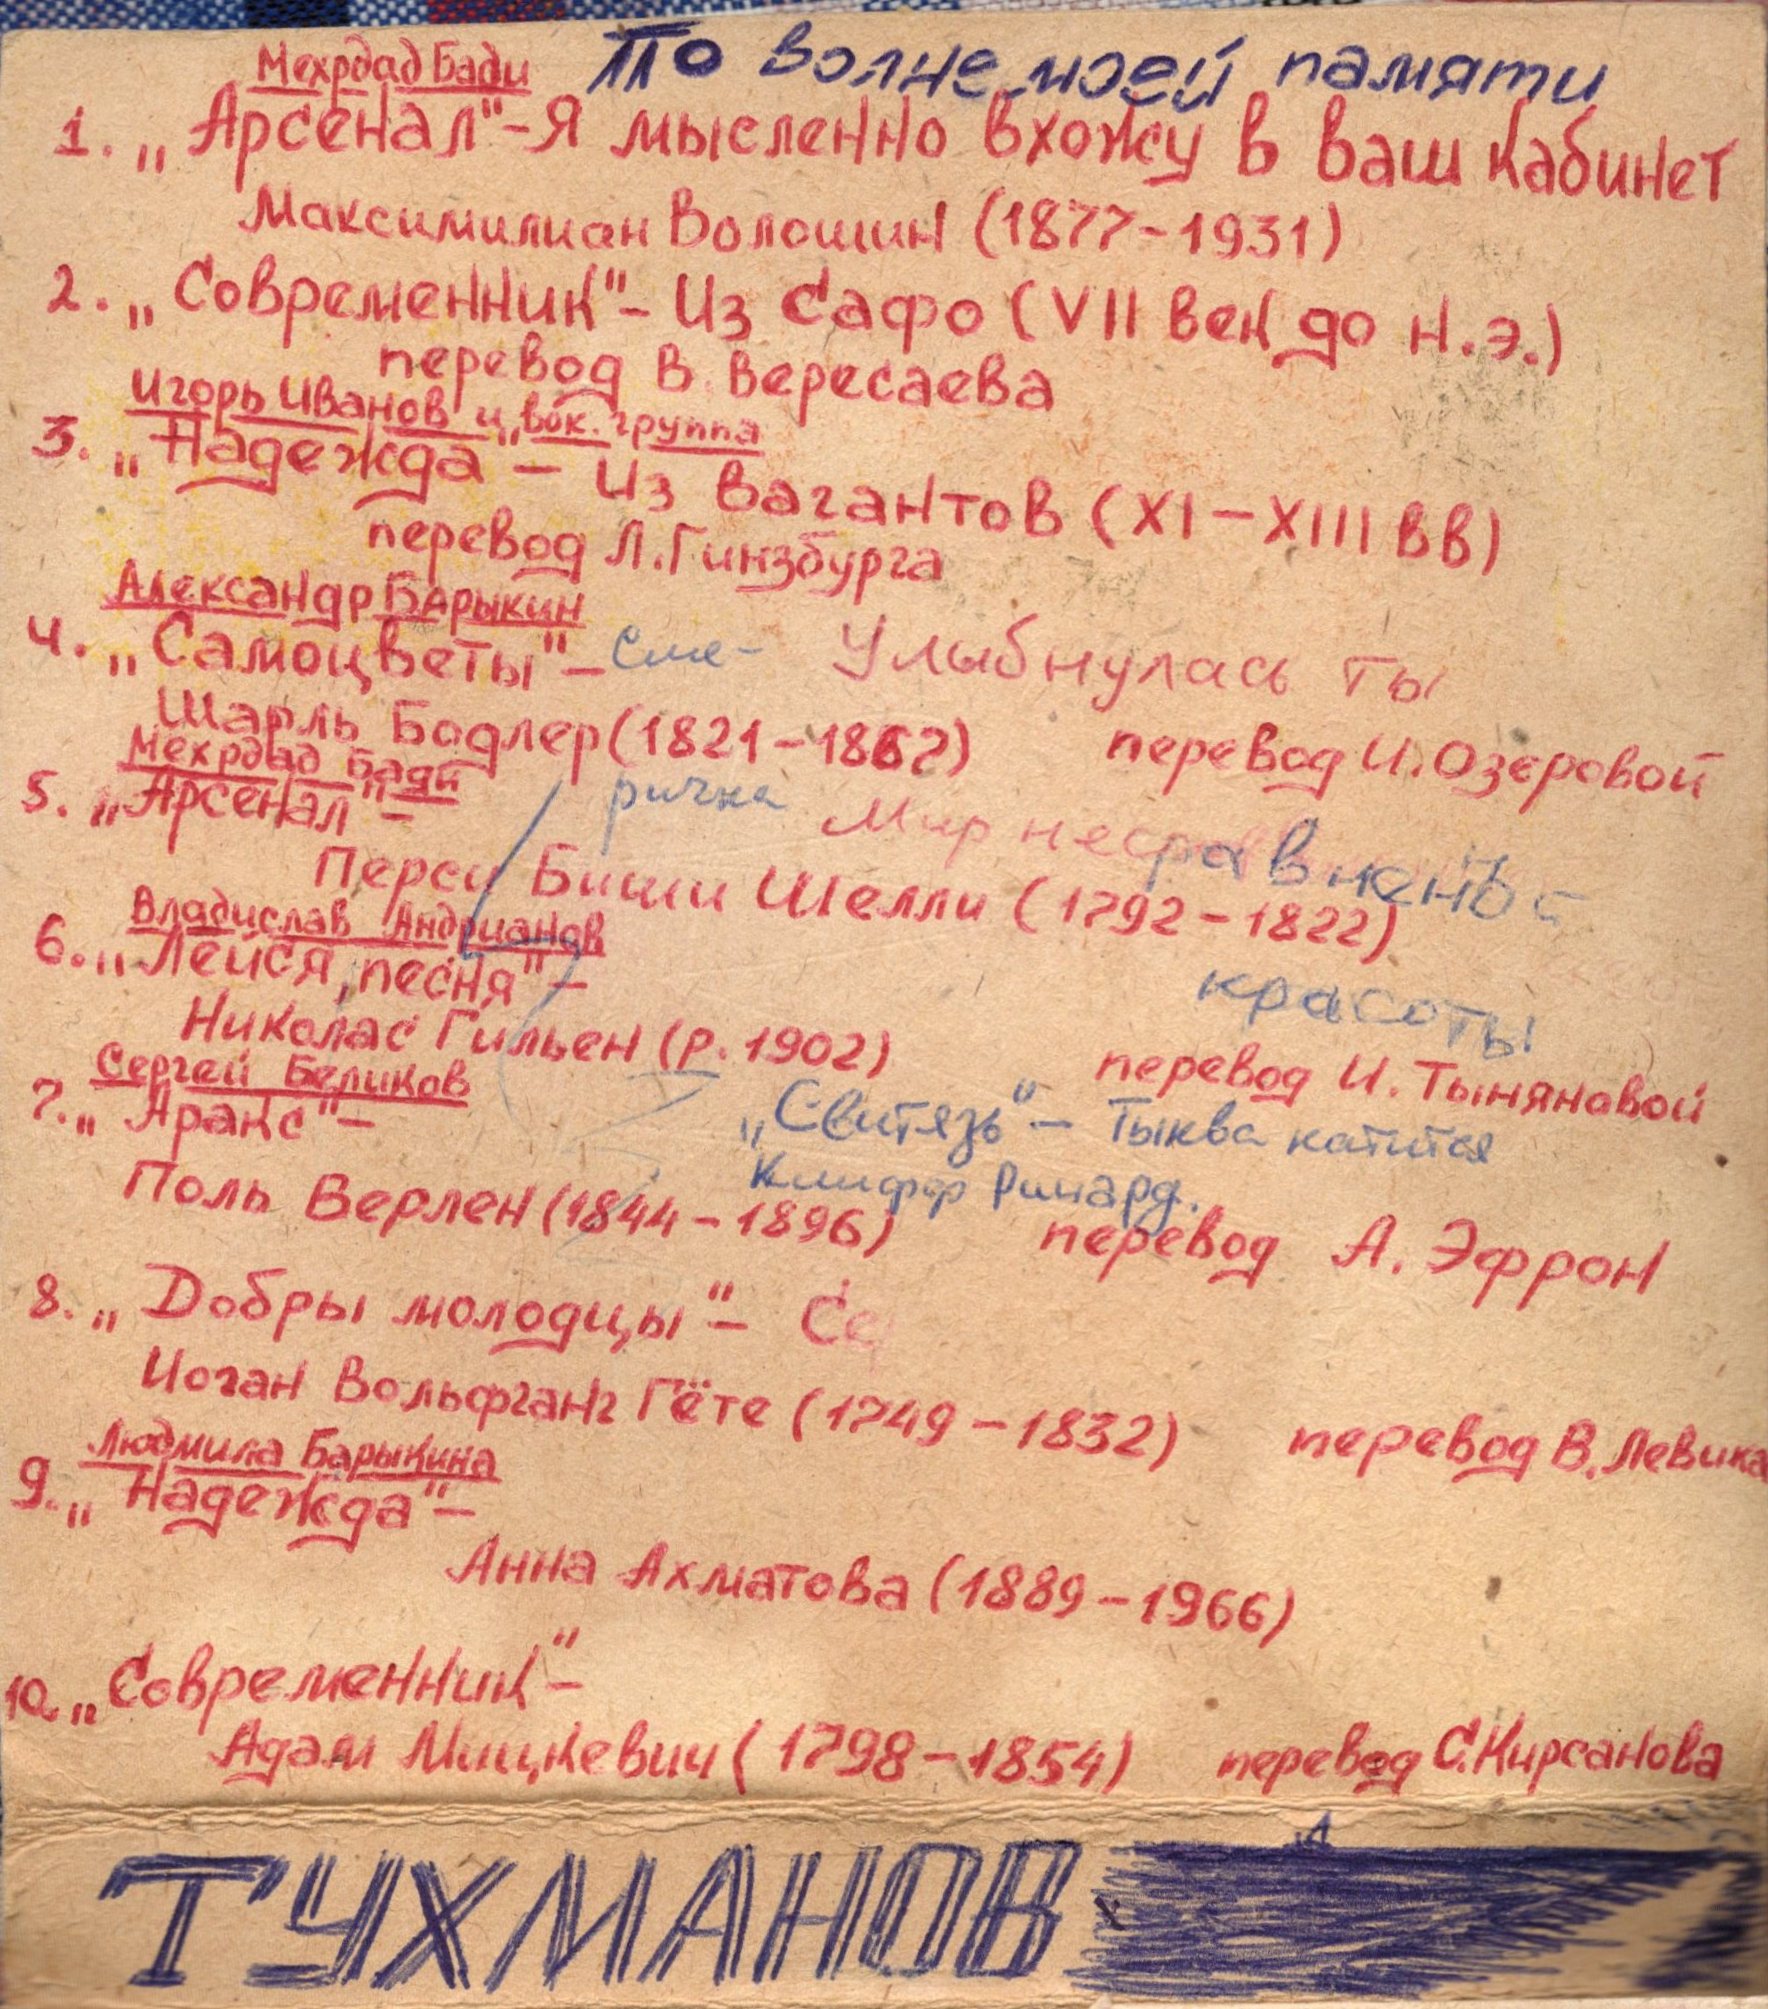 По волне моей памяти
Мехрдад Бади
1. „Арсенал" - Я мысленно вхожу в ваш кабинет
Максимилиан Волошин (1877-1931)
2. „Современник" - Из Сафо (VII век до н.э.)
перевод В. Вересаева
Игорь Иванов и вок. группа
3. „Надежда" - Из вагантов (XI-XIII вв)
перевод Л. Гинзбурга
Александр Барыкин
4. „Самоцветы" - Сме- Улыбнулась ты
Шарль Бодлер (1821-1867) перевод И. Озеровой
Мехрдад Бади
5. „Арсенал" - ричка Мир несравненной
Перси Биши Шелли (1792-1822)
красоты
Владислав Андрианов
6. „Лейся, песня" -
Николас Гильен (р. 1902) перевод И. Тыняновой
Сергей Беликов
7. „Аракс" - „Свитязь" - Тыква катится
Клифф Ричард.
Поль Верлен (1844-1896) перевод А. Эфрон
8. „Добры молодцы" - Се
Иоган Вольфганг Гёте (1749-1832) перевод В. Левика
Людмила Барыкина
9. „Надежда" -
Анна Ахматова (1889-1966)
10. „Современник" -
Адам Мицкевич (1798-1854) перевод С. Кирсанова
ТУХМАНОВ